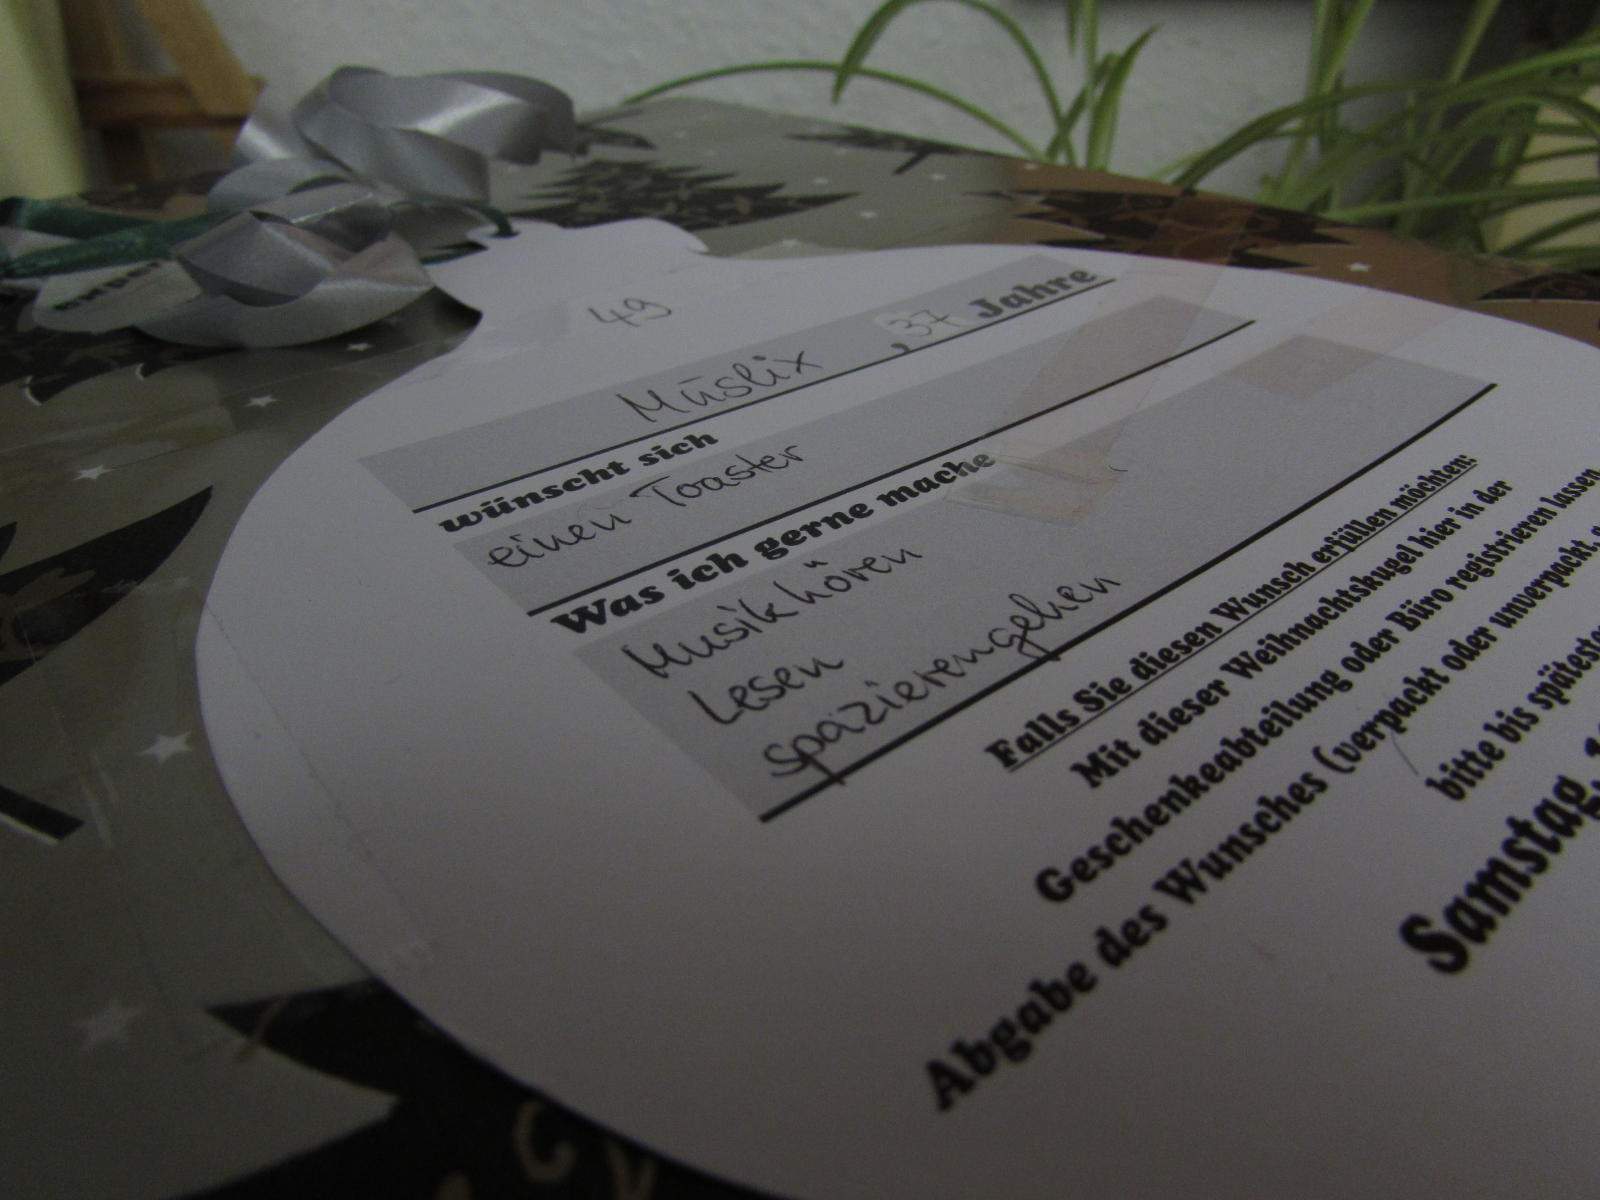 49
Müslix , 37 Jahre
wünscht sich
einen Toaster
Was ich gerne mache
Musik hören
Lesen
spazierengehen
Falls Sie diesen Wunsch erfüllen möchten:
Mit dieser Weihnachtskugel hier in der
Geschenkeabteilung oder Büro registrieren lassen
Abgabe des Wunsches (verpackt oder unverpackt,
bitte bis
Samstag,